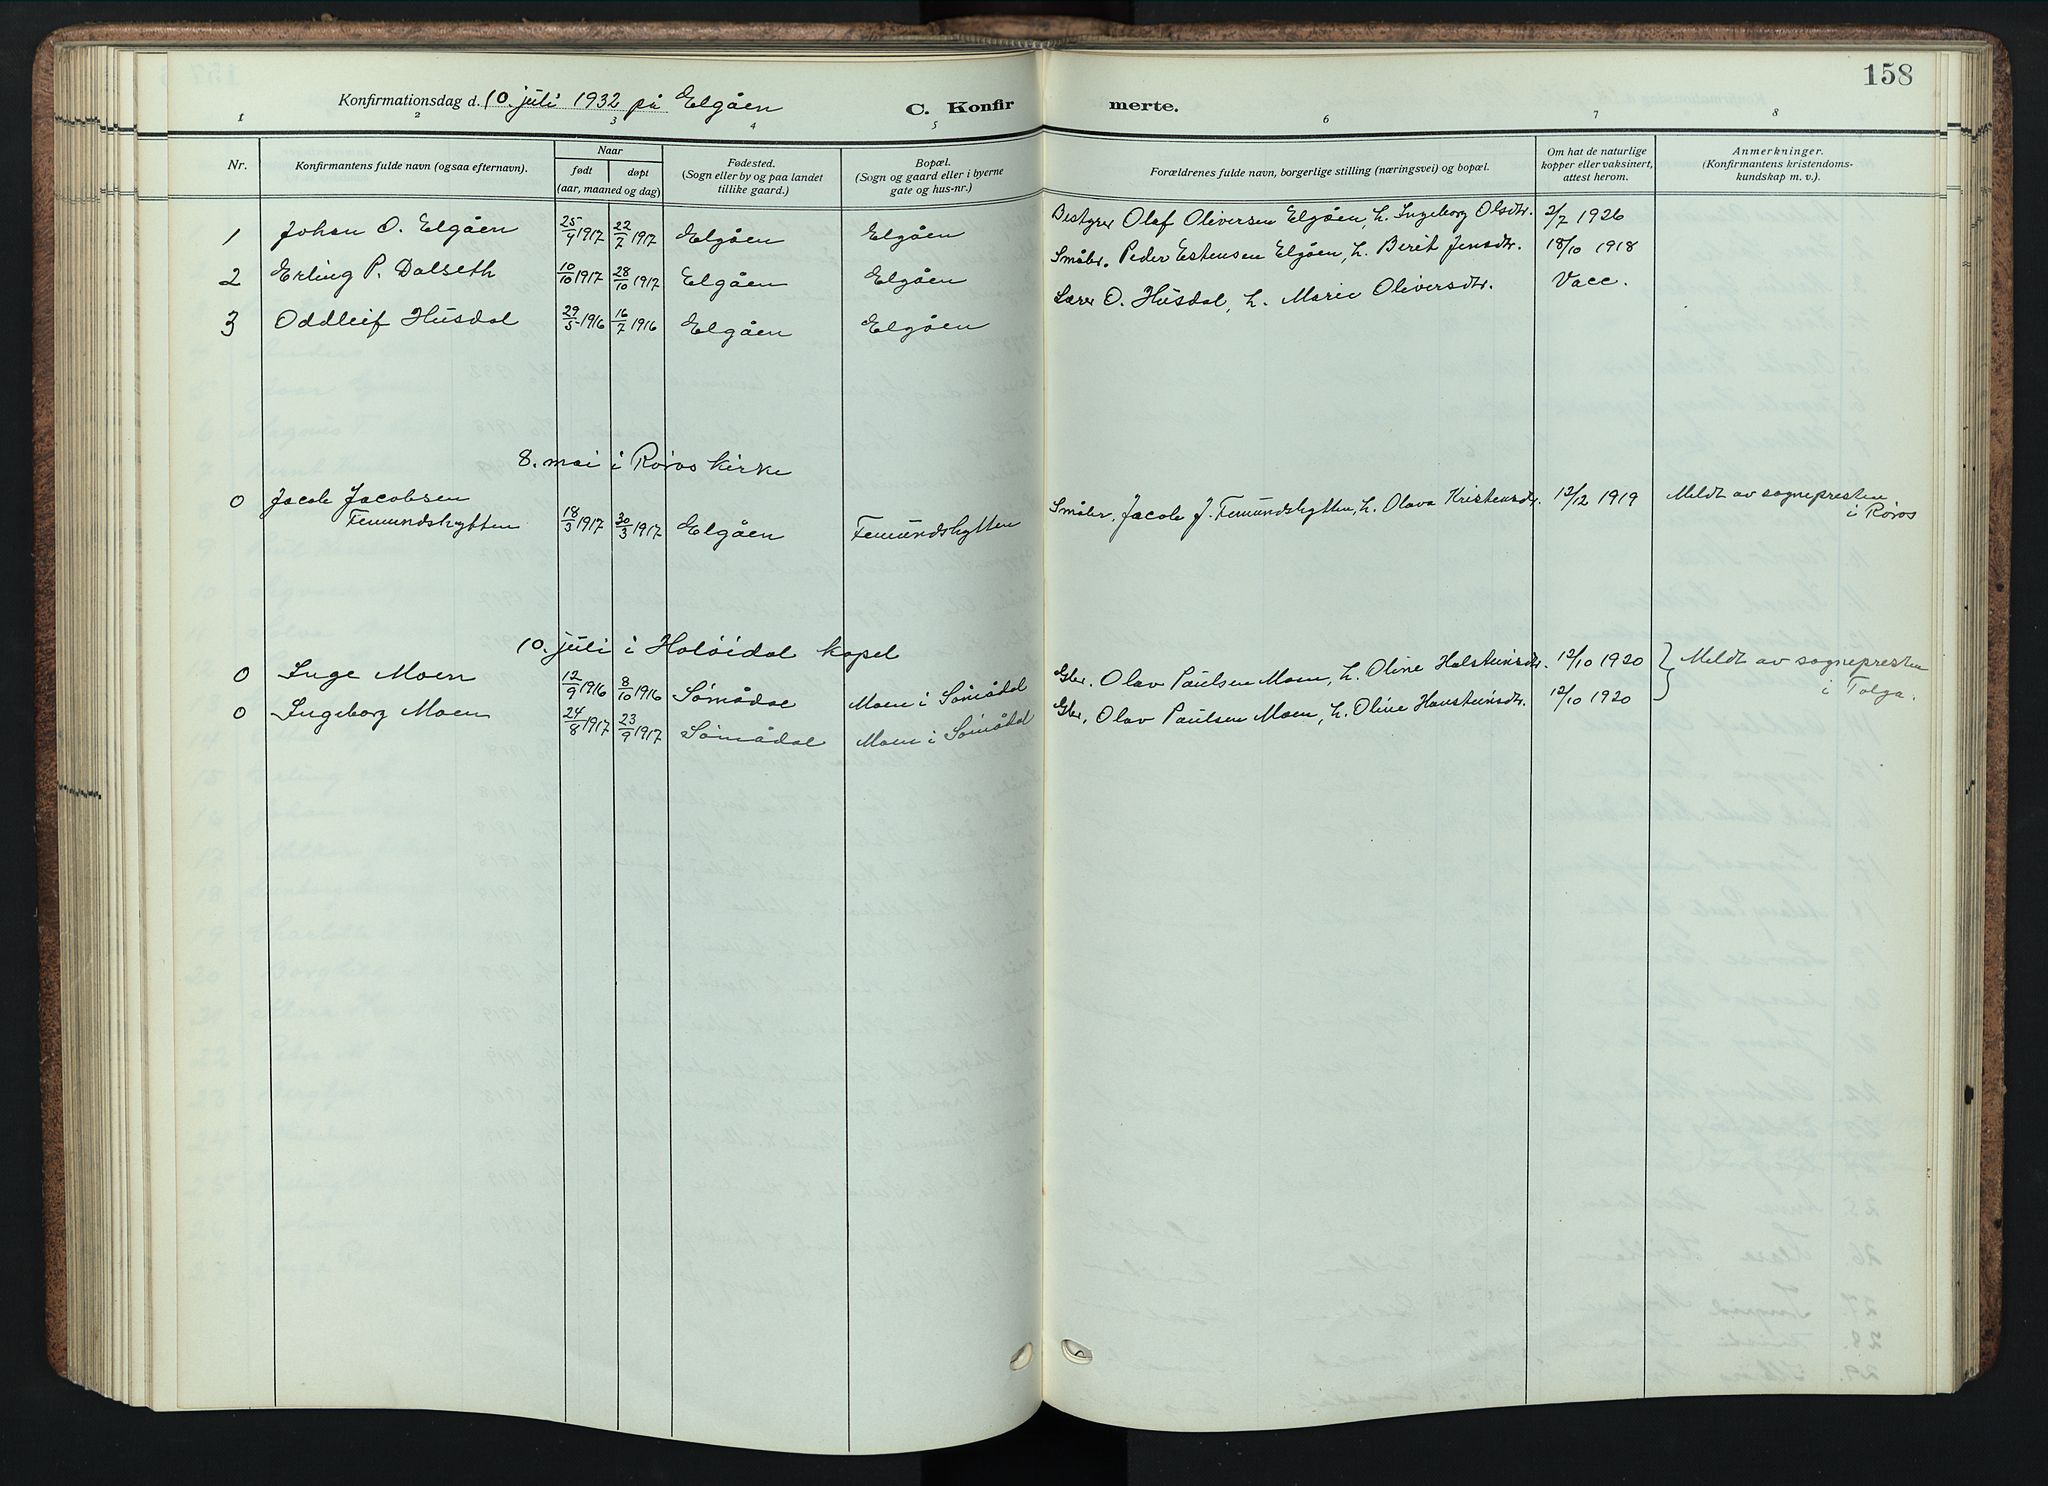 158
Konfirmationsdag d. 10. juli 1932 på Elgåen C. Konfirmerte.
1 2 3 4 5 6 7 8
Nr. Konfirmantens fulde navn (ogsaa efternavn). Naar født døpt (aar, maaned og dag) Fødested. (Sogn eller by og paa landet tillike gaard.) Bopæl. (Sogn og gaard eller i byerne gate og hus-nr.) Forældrenes fulde navn, borgerlige stilling (næringsvei) og bopæl. Om hat de naturlige kopper eller vaksinert, attest herom. Anmerkninger. (Konfirmantens kristendomskundskap m. v.).
1 Johan O. Elgåen 25/4 1917 22/7 1917 Elgåen Elgåen Bestyrer Olaf Oliversen Elgåen, h. Ingeborg Olsdtr. 2/7 1926
2 Erling P. Dalseth 10/10 1917 28/10 1917 Elgåen Elgåen Småbr. Peder Estensen Elgåen, h. Berit Jensdtr. 18/10 1918
3 Oddleif Husdal 29/5 1916 16/7 1916 Elgåen Elgåen Lærer O. Husdal, h. Marie Oliversdtr. Vacc.
8. mai i Røros kirke
0 Jacob Jacobsen Femundshytten 18/3 1917 30/3 1917 Elgåen Femundshytten Småbr. Jacob J. Femundshytten, h. Olava Kristensdtr. 12/12 1919 Meldt av sognepresten i Røros
10. juli i Holøidal kapel
0 Inge Moen 12/9 1916 8/10 1916 Sømådal Moen i Sømådal Gbr. Olav Paulsen Moen, h. Oline Halsteinsdtr. 12/10 1920 Meldt av sognepresten i Tolga.
0 Ingeborg Moen 24/8 1917 23/9 1917 Sømådal Moen i Sømådal Gbr. Olav Paulsen Moen, h. Oline Hansteinsdtr. 12/10 1920